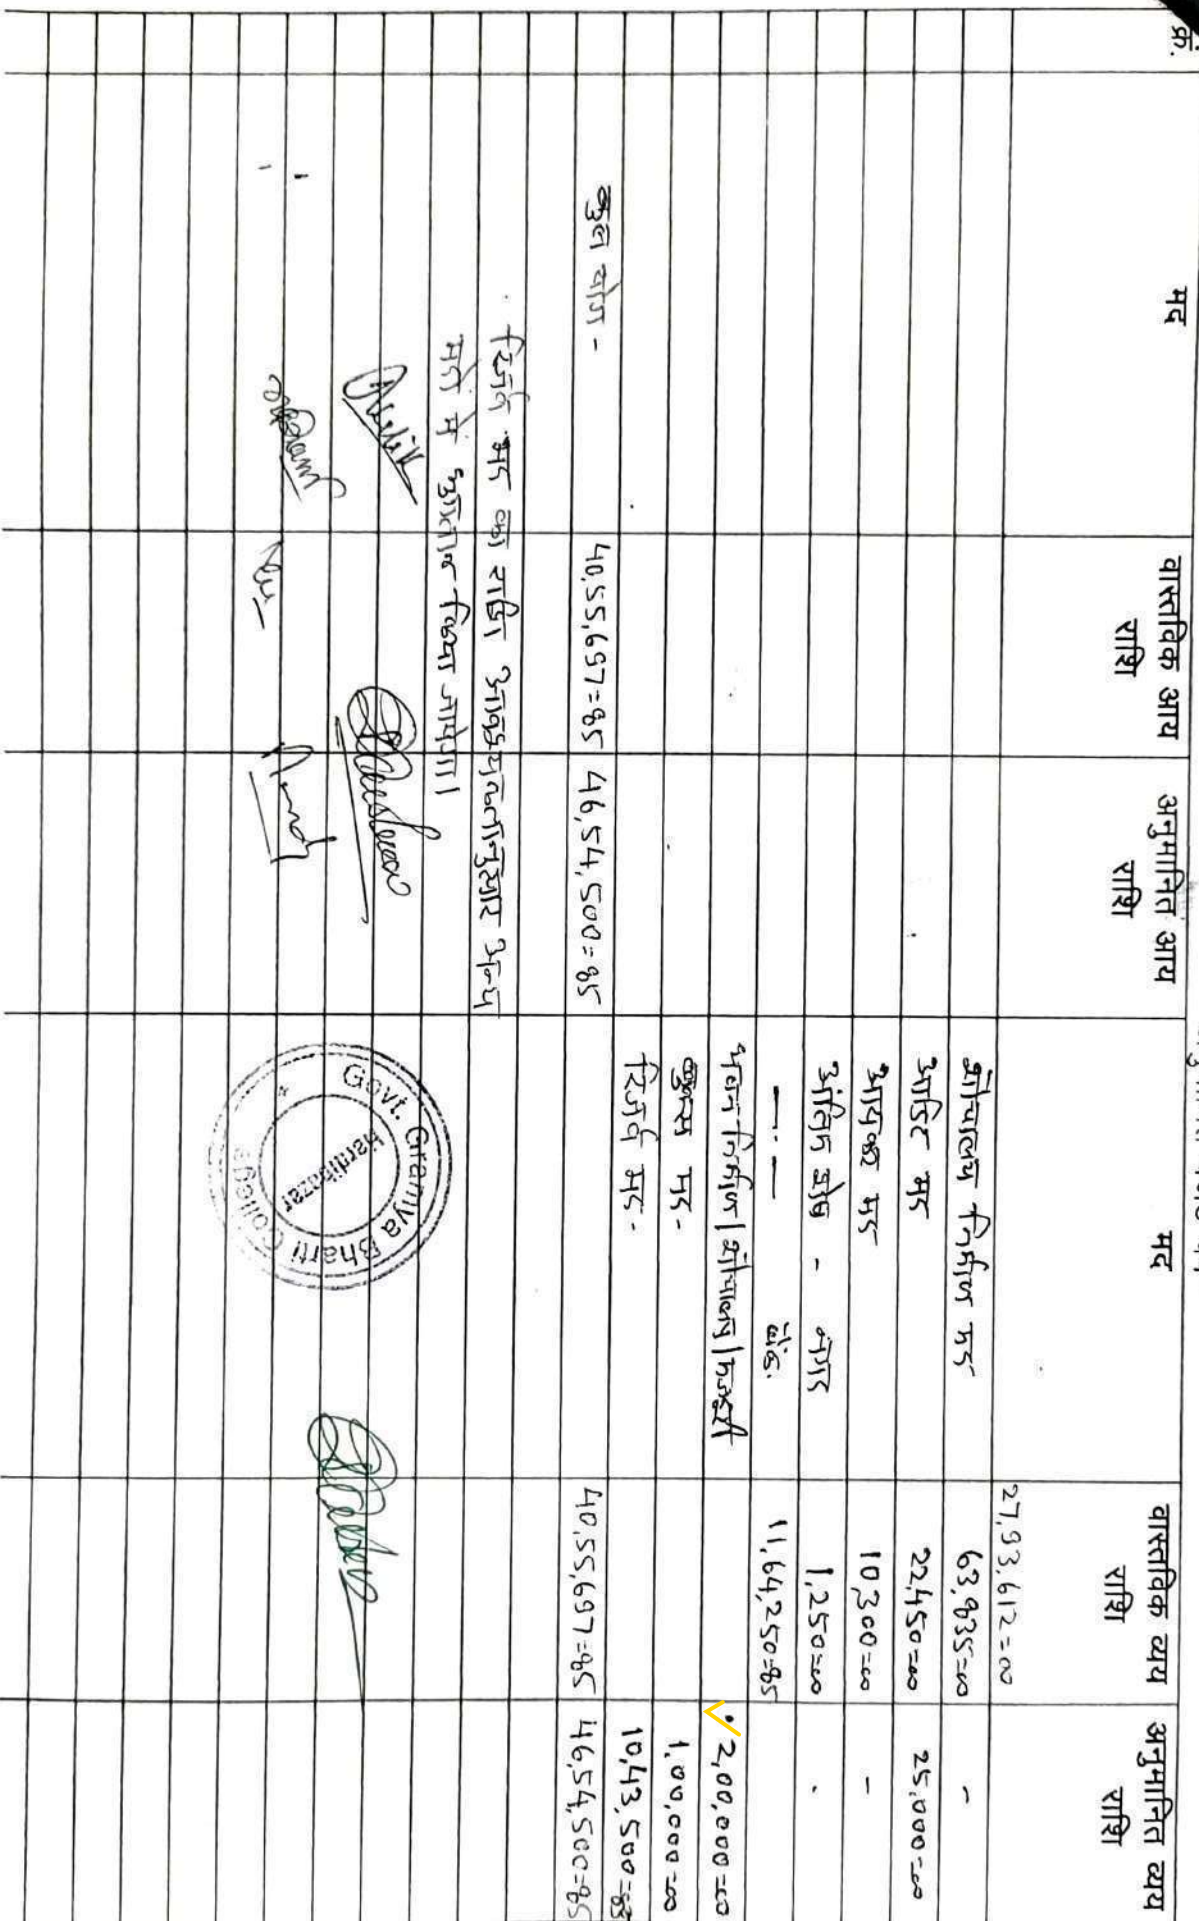 क्र. मद वास्तविक आय राशि अनुमानित आय राशि मद वास्तविक व्यय राशि अनुमानित व्यय राशि
27,93,612=00
शौचालय निर्माण मद 63,835=00 -
आडिट मद 22,450=00 25,000=00
आयकर मद 10,300=00 -
अंतिम शेष - नगद 1,250=00
—"— बैंक. 11,64,250=85
भवन निर्माण/शौचालय/ 2,00,000=00
मद - 1,00,000=00
रिजर्व मद - 10,43,500=85
कुल योग - 40,55,697=85 46,54,500=85 40,55,697=85 46,54,500=85
रिजर्व मद का राशि आवश्यकतानुसार अन्य
मदो में भुगतान किया जायेगा।
Govt. Gramya Bharti College
Hardibazar